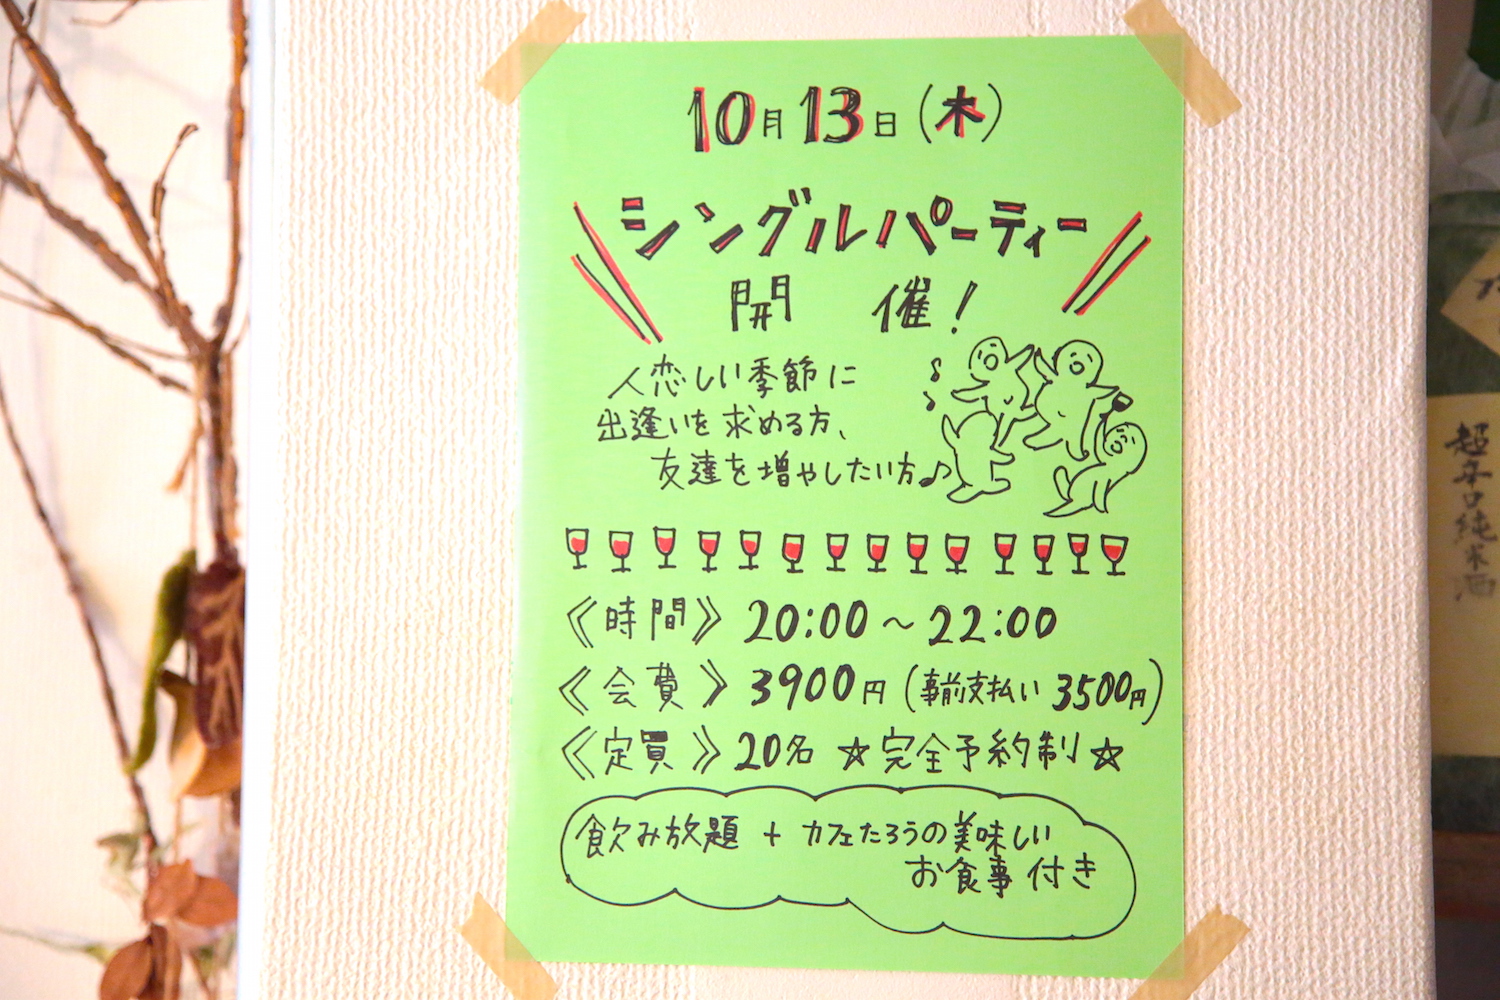 10月13日(木)
シングルパーティー
開催!
人恋しい季節に
出逢いを求める方、
友達を増やしたい方♪
《時間》20:00～22:00
《会費》3900円(事前支払い3500円)
《定員》20名 ☆完全予約制☆
飲み放題 + カフェたろうの美味しい
お食事付き
超辛口純米酒